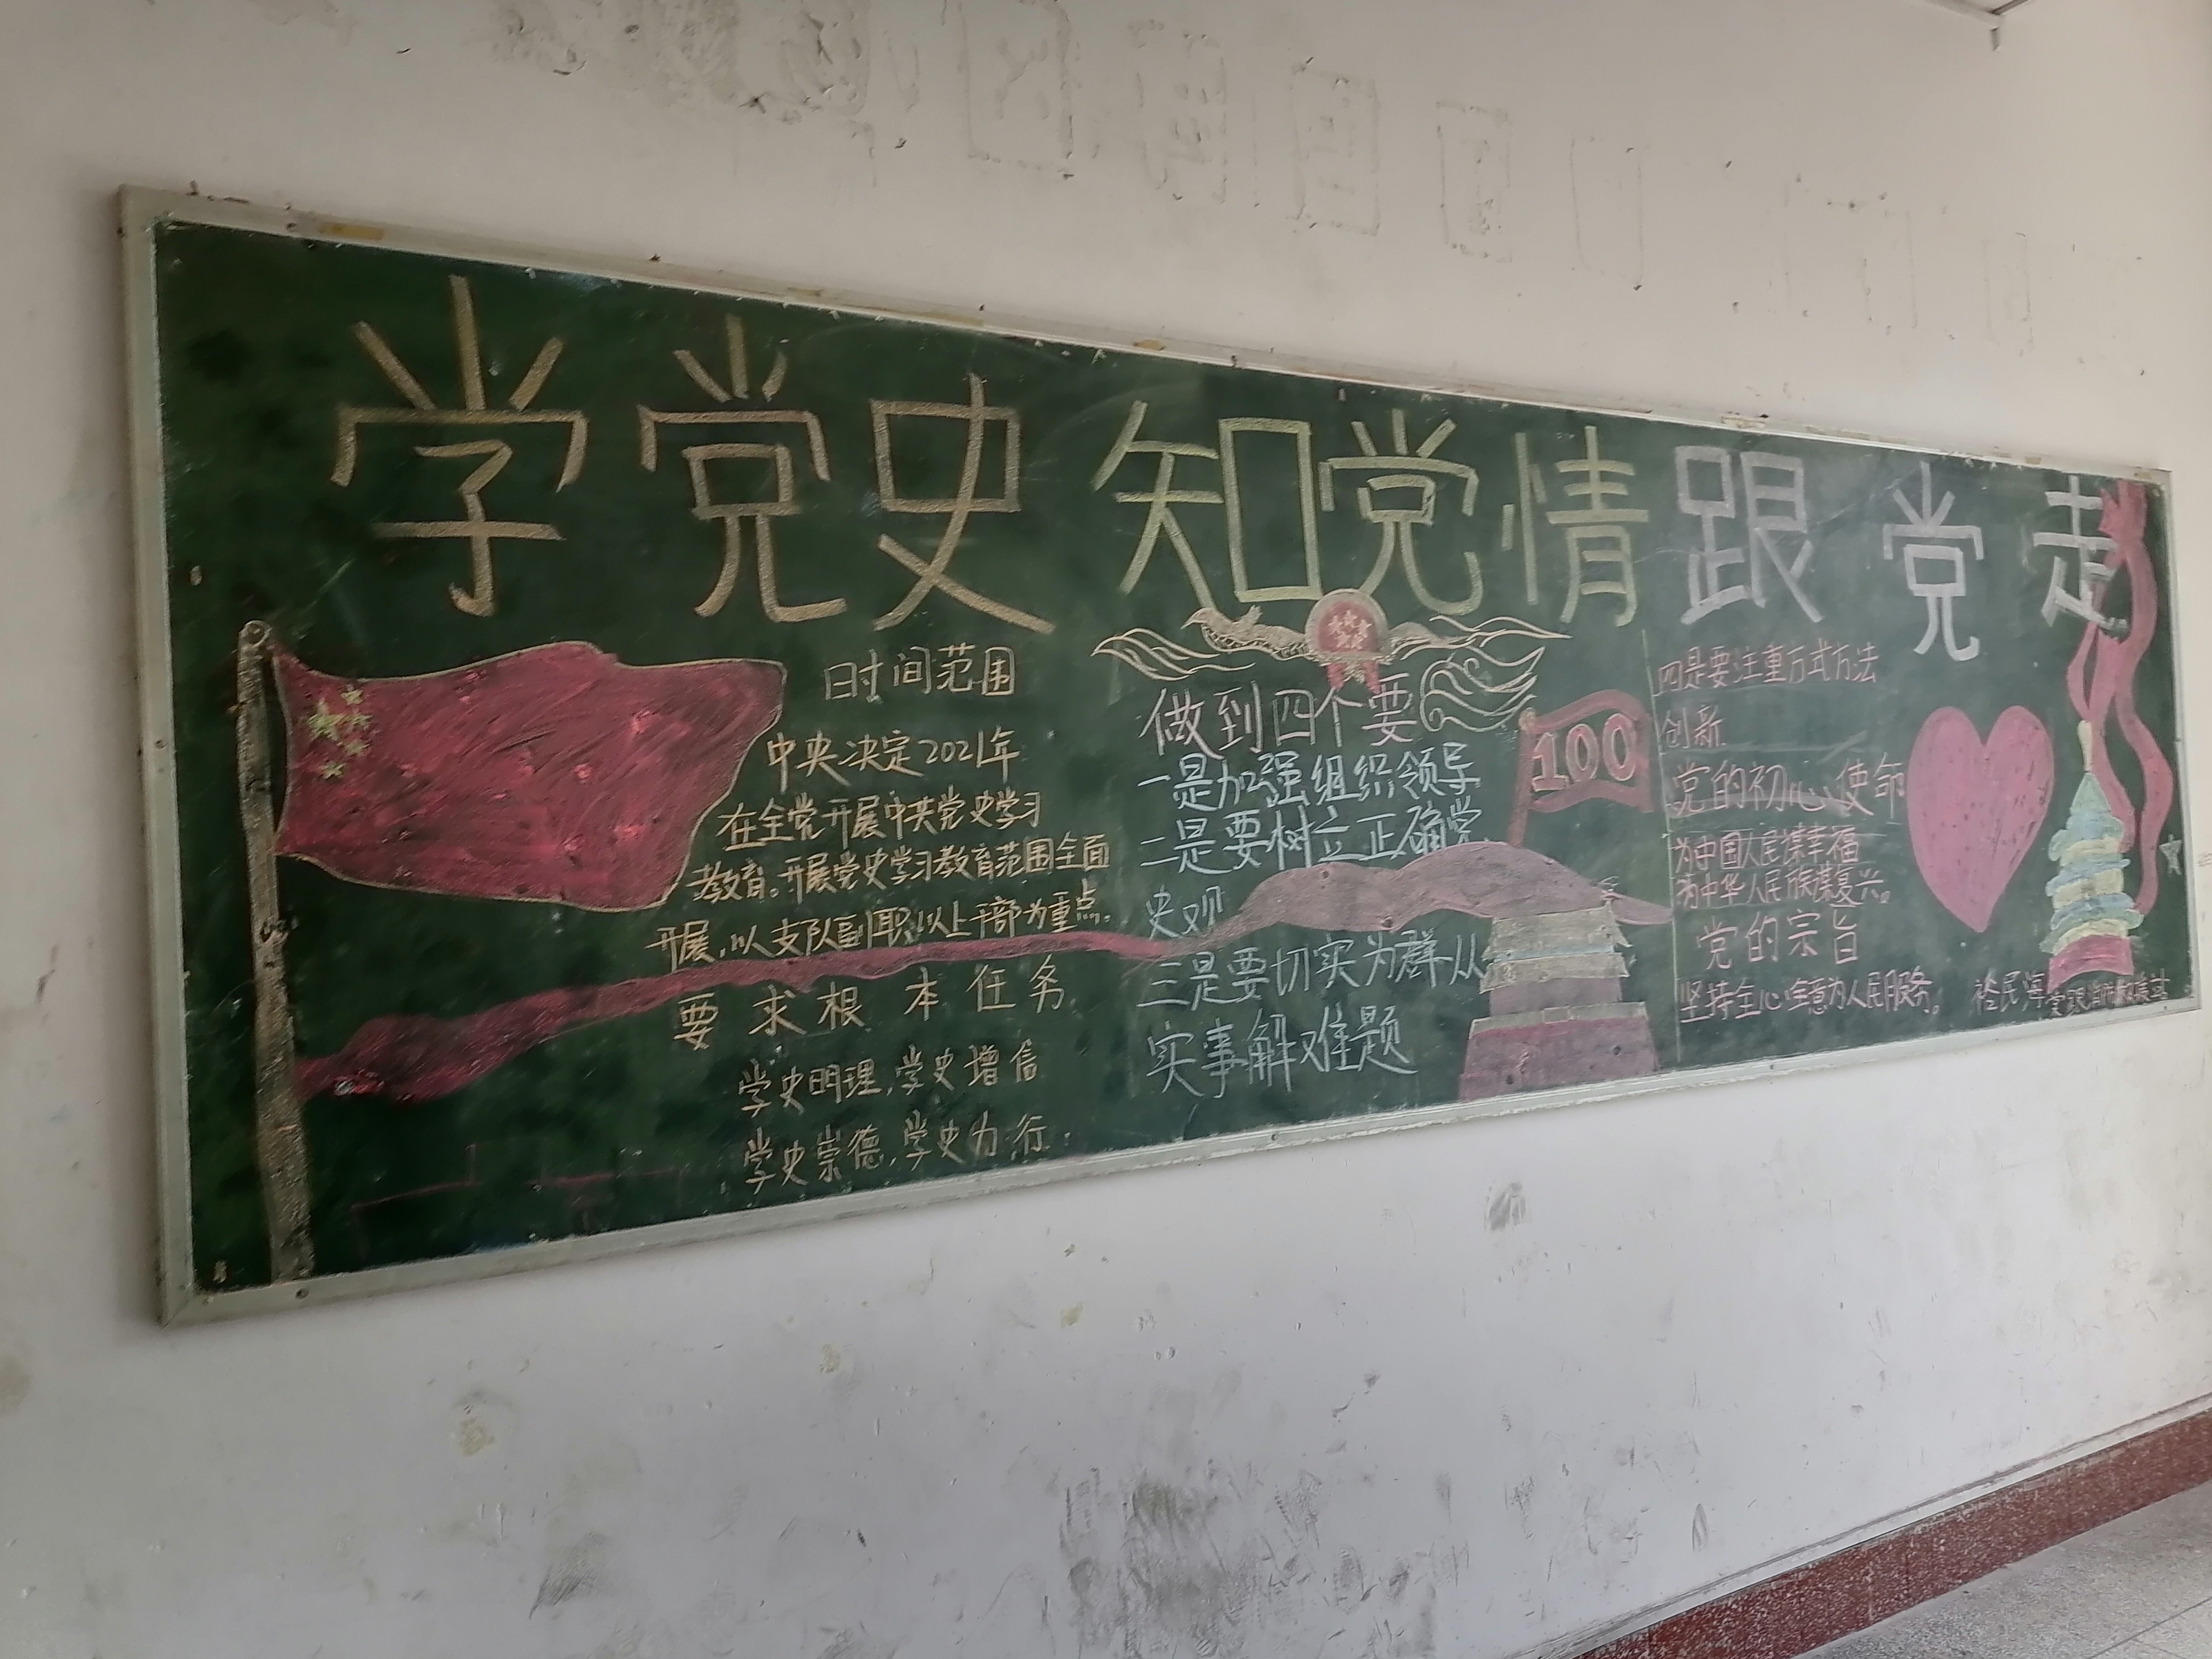 学党史 知党情 跟党走
时间范围
中央决定2021年
在全党开展中共党史学习
教育。开展党史学习教育范围全面
开展,以支队副职以上干部为重点.
要求根本任务
学史明理,学史增信
学史崇德,学史力行.
做到四个要
一是加强组织领导
二是要树立正确党
史观
三是要切实为群从
实事解难题
100
四是要注重方式方法
创新
党的初心使命
为中国人民谋幸福
为中华人民族谋复兴。
党的宗旨
坚持全心全意为人民服务。